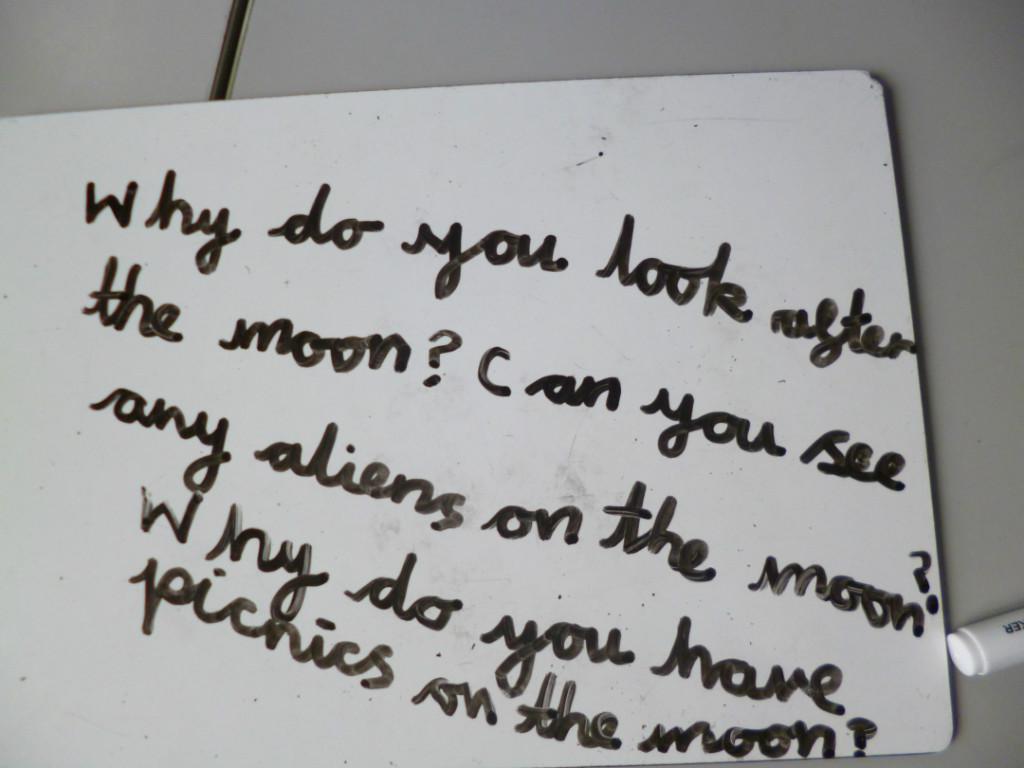 Why do you look after
the moon? Can you see
any aliens on the moon?
Why do you have
picnics on the moon?
KER